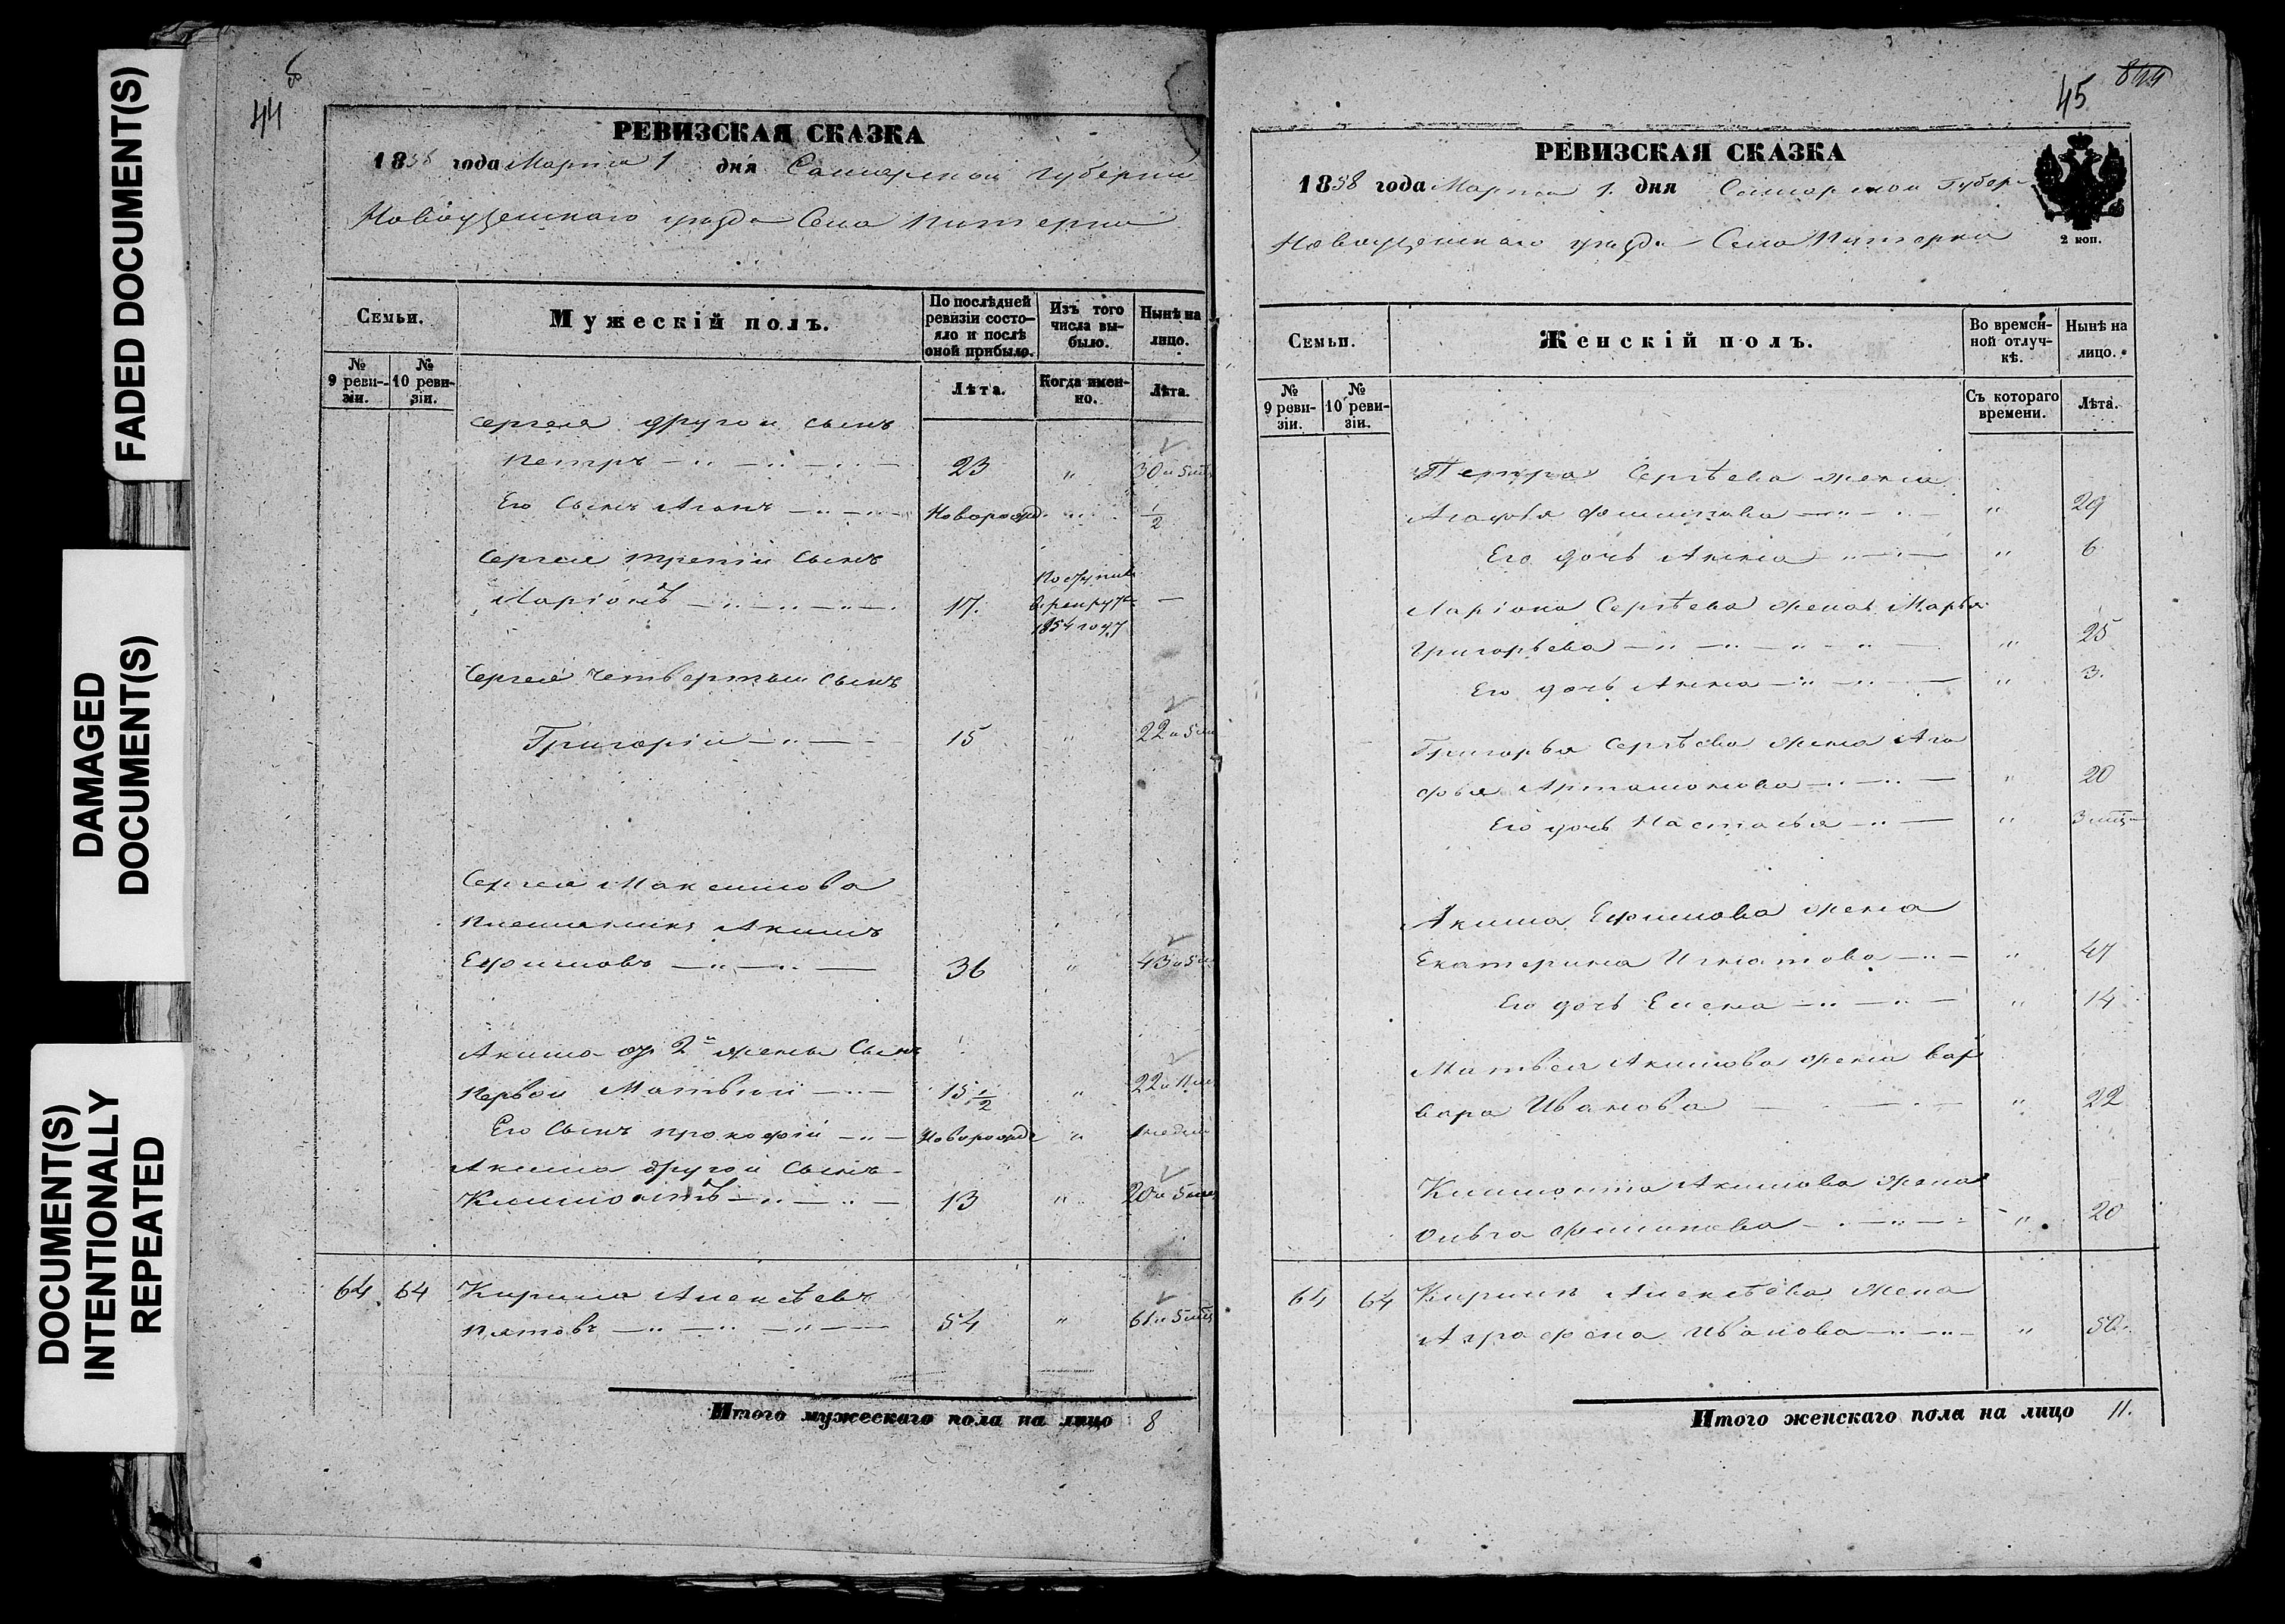 FADED DOCUMENT(S)
DAMAGED
DOCUMENT(S)
DOCUMENT(S)
INTENTIONALLY
REPEATED
44
РЕВИЗСКАЯ СКАЗКА
1858 года Марта 1 дня Самарской губерніи
Новоузенскаго уезда Села Питерки
Семьи.
Мужескій полъ.
По послѣдней ревизіи состояло и послѣ оной прибыло.
Изъ того числа выбыло.
Нынѣ на лицо.
№ 9 ревизіи.
№ 10 ревизіи.
Лѣта.
Когда именно.
Лѣта.
Сергея другой сынъ
Петръ 23 " 30 и 5 мц
Его сынъ Новорожд. " 1/2
Сергея третій сынъ
Ларіонъ 17. Поступил в рекруты 1854 году —
Сергея четвертый сынъ
Григорій 15 " 22 и 5 м
Сергея Максимова
племянникъ Акимъ
Ефимовъ 36 " 43 и 5 м
Акима от 2й жены Сынъ
Первой Матвей 15 1/2 " 22 и 11 м
Его Сынъ Прокофій Новорожд " 1 недели
Акима другой Сынъ
Климонтъ 13 " 20 и 5 мц
64 64 Кирила Алексѣевъ
Пятовъ 54 " 61 и 5 мц
Итого мужескаго пола на лицо 8
45 844
РЕВИЗСКАЯ СКАЗКА
1858 года Марта 1. дня Самарской Губер
Новоузенскаго уезда Села Питерки
2 коп.
Семьи.
Женскій полъ.
Во временной отлучкѣ.
Нынѣ на лицо.
№ 9 ревизіи.
№ 10 ревизіи.
Съ котораго времени.
Лѣта.
Петра Сергѣева жена
Агафья " 29
Его дочь Анна " 6
Ларіона Сергѣева жена Марья
Григорьева " 25
Его дочь Анна " 3.
Григорья Сергѣева жена Ага
фья Артамонова " 20
Его дочь Настасья " 3 мц
Акима Ефимова жена
Екатерина Игнатова " 47
Его дочь Елена " 14
Матвея Акимова жена Вар
вара Иванова " 22
Климонта Акимова жена
Ольга Филипова " 20
64 64 Кирила Алексѣева Жена
Аграфена Иванова " 50.
Итого женскаго пола на лицо 11.